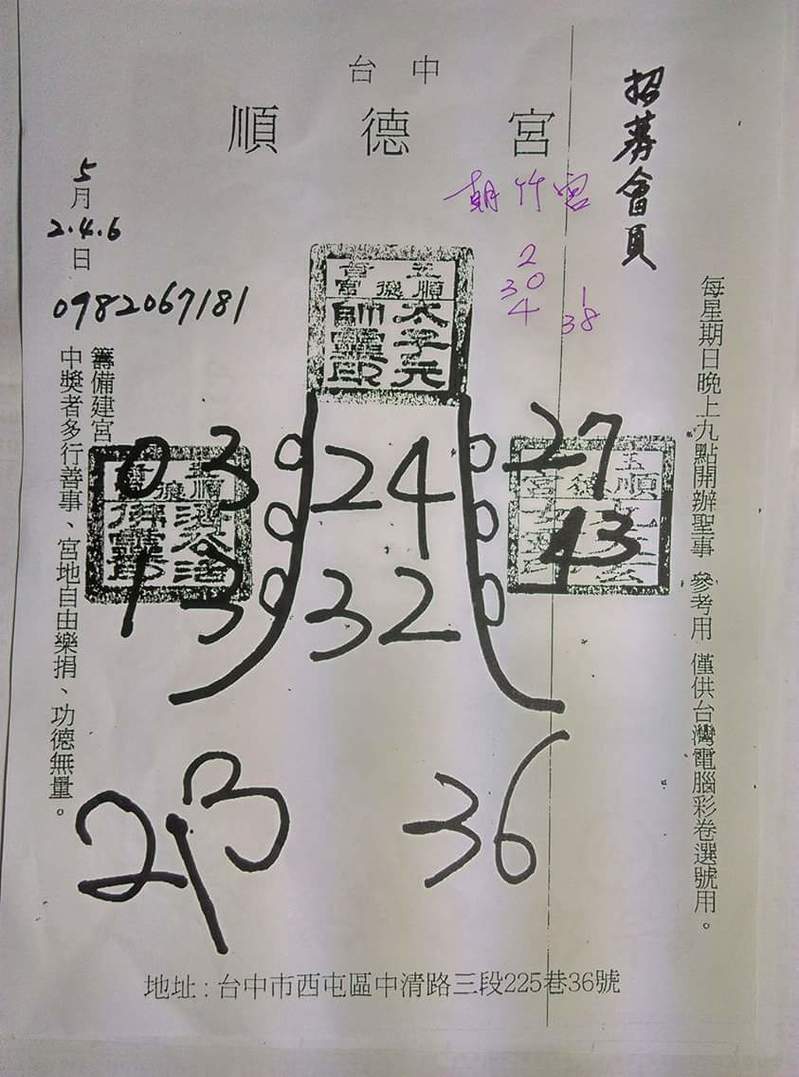 台中
順德宮
招募會員
5月2.4.6日
0982067181
朝竹宮
2
30
4
1
38
每星期日晚上九點開辦聖事 參考用 僅供台灣電腦彩卷選號用。
籌備建宮
中獎者多行善事、宮地自由樂捐、功德無量。
太子元
帥靈印
03 24 27
13 32 43
213 36
地址:台中市西屯區中清路三段225巷36號